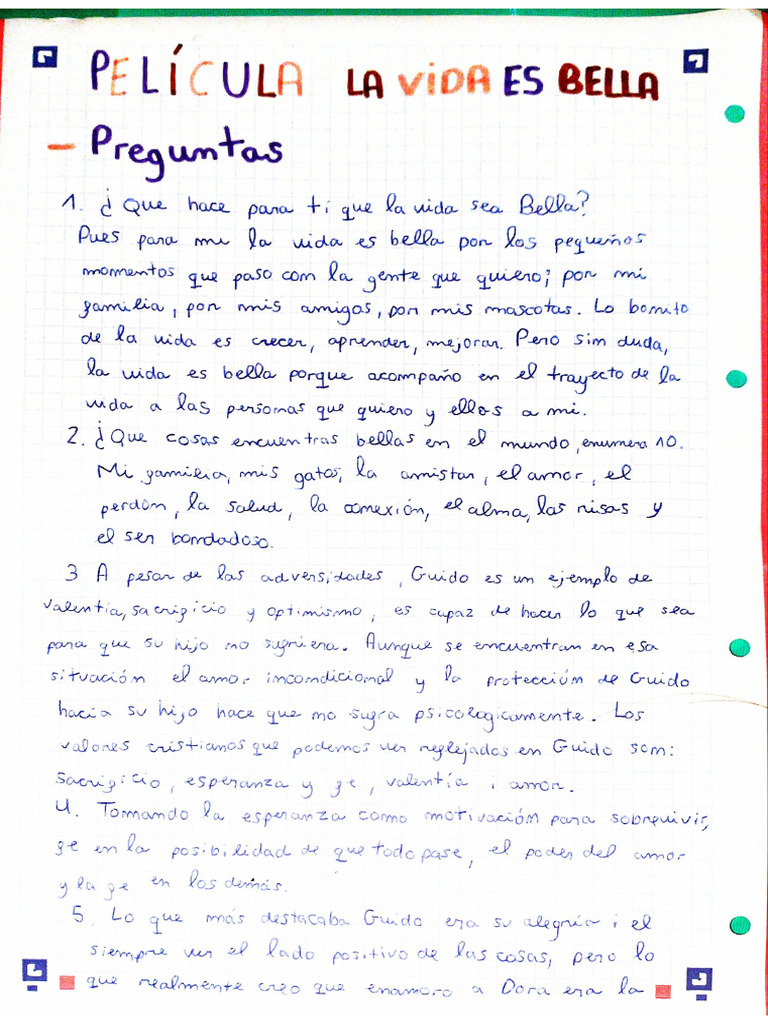 PELÍCULA LA VIDA ES BELLA
- Preguntas
1. ¿Que hace para ti que la vida sea Bella?
Pues para mi la vida es bella por los pequeños
momentos que paso con la gente que quiero; por mi
familia, por mis amigos, por mis mascotas. Lo bonito
de la vida es crecer, aprender, mejorar. Pero sin duda,
la vida es bella porque acompaño en el trayecto de la
vida a las personas que quiero y ellos a mi.
2. ¿Que cosas encuentras bellas en el mundo, enumera 10.
Mi familia, mis gatos, la amistar, el amor, el
perdón, la salud, la conexión, el alma, las risas y
el ser bondadoso.
3 A pesar de las adversidades, Guido es un ejemplo de
valentía, sacrificio y optimismo, es capaz de hacer lo que sea
para que su hijo no sufriera. Aunque se encuentran en esa
situación el amor incondicional y la protección de Guido
hacia su hijo hace que no sufra psicologicamente. Los
valores cristianos que podemos ver reflejados en Guido son:
Sacrificio, esperanza y fe, valentía i amor.
4. Tomando la esperanza como motivación para sobrevivir,
fe en la posibilidad de que todo pase, el poder del amor
y la fe en los demás.
5. Lo que más destacaba Guido era su alegría i el
siempre ver el lado positivo de las cosas, pero lo
que realmente creo que enamoro a Dora era la